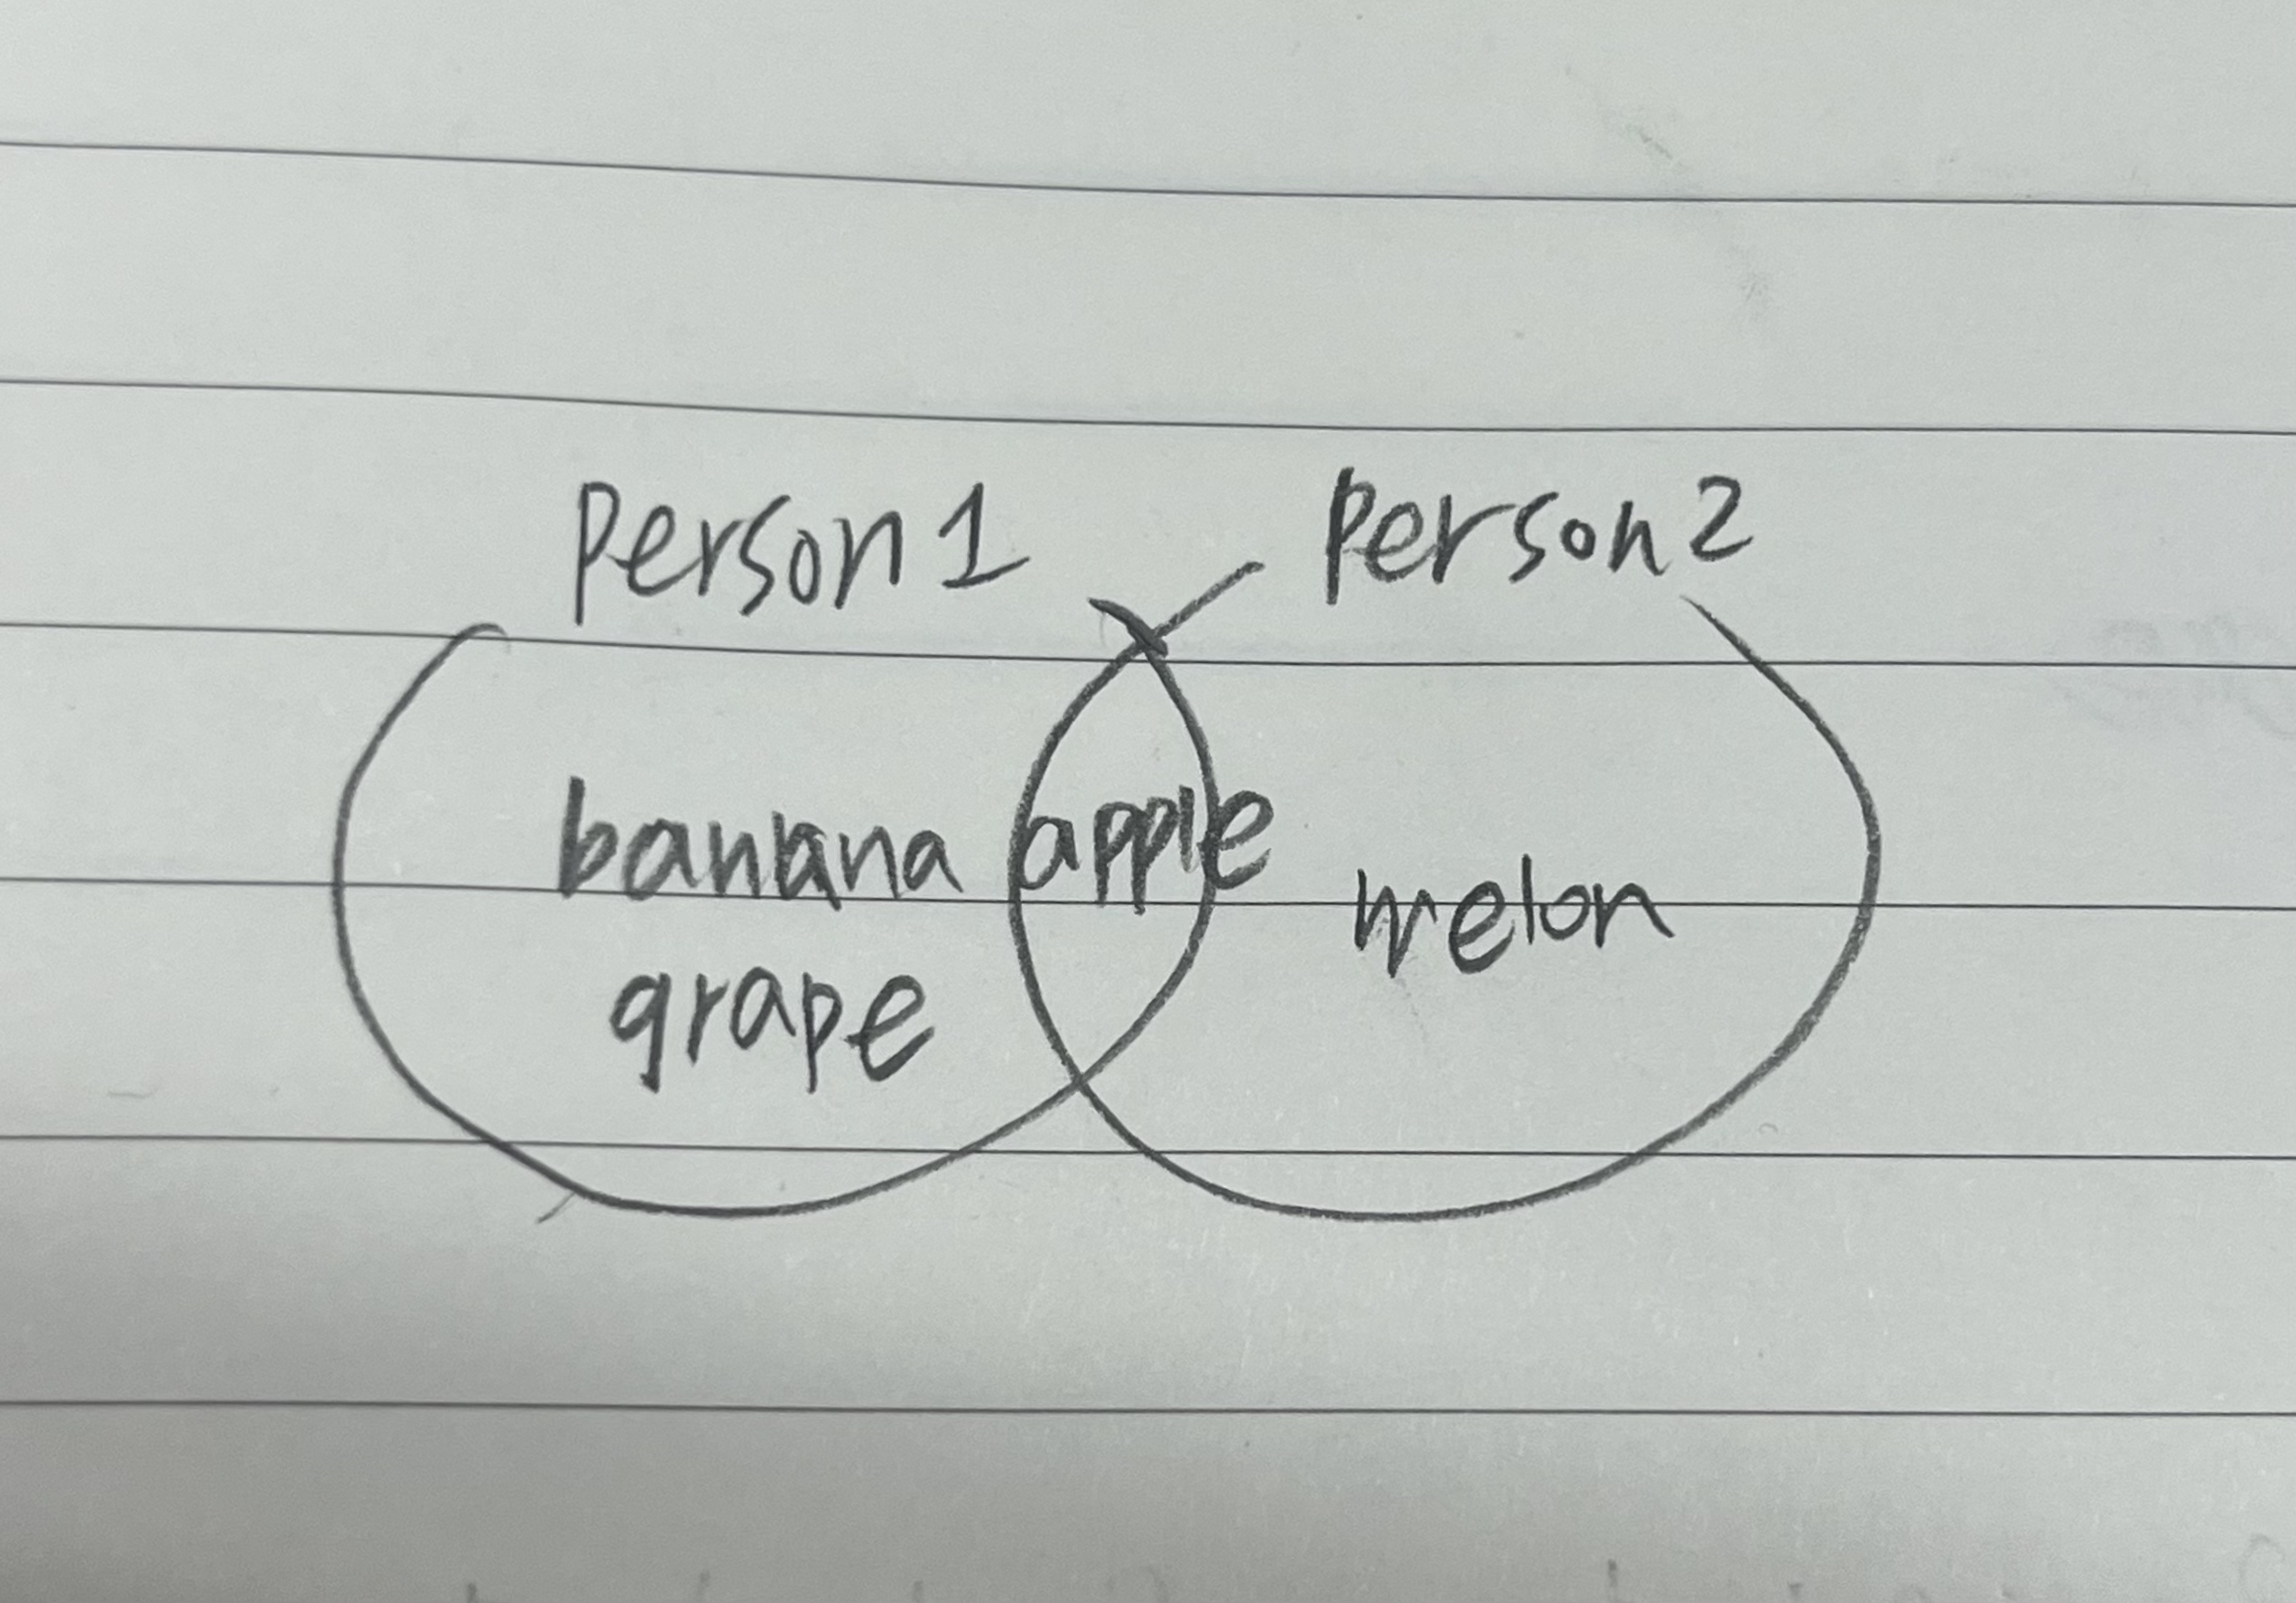 Person 1 Person 2
banana apple melon
grape